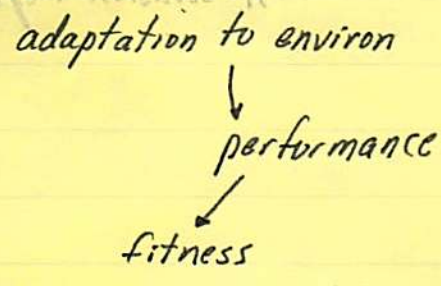 adaptation to environ
performance
fitness